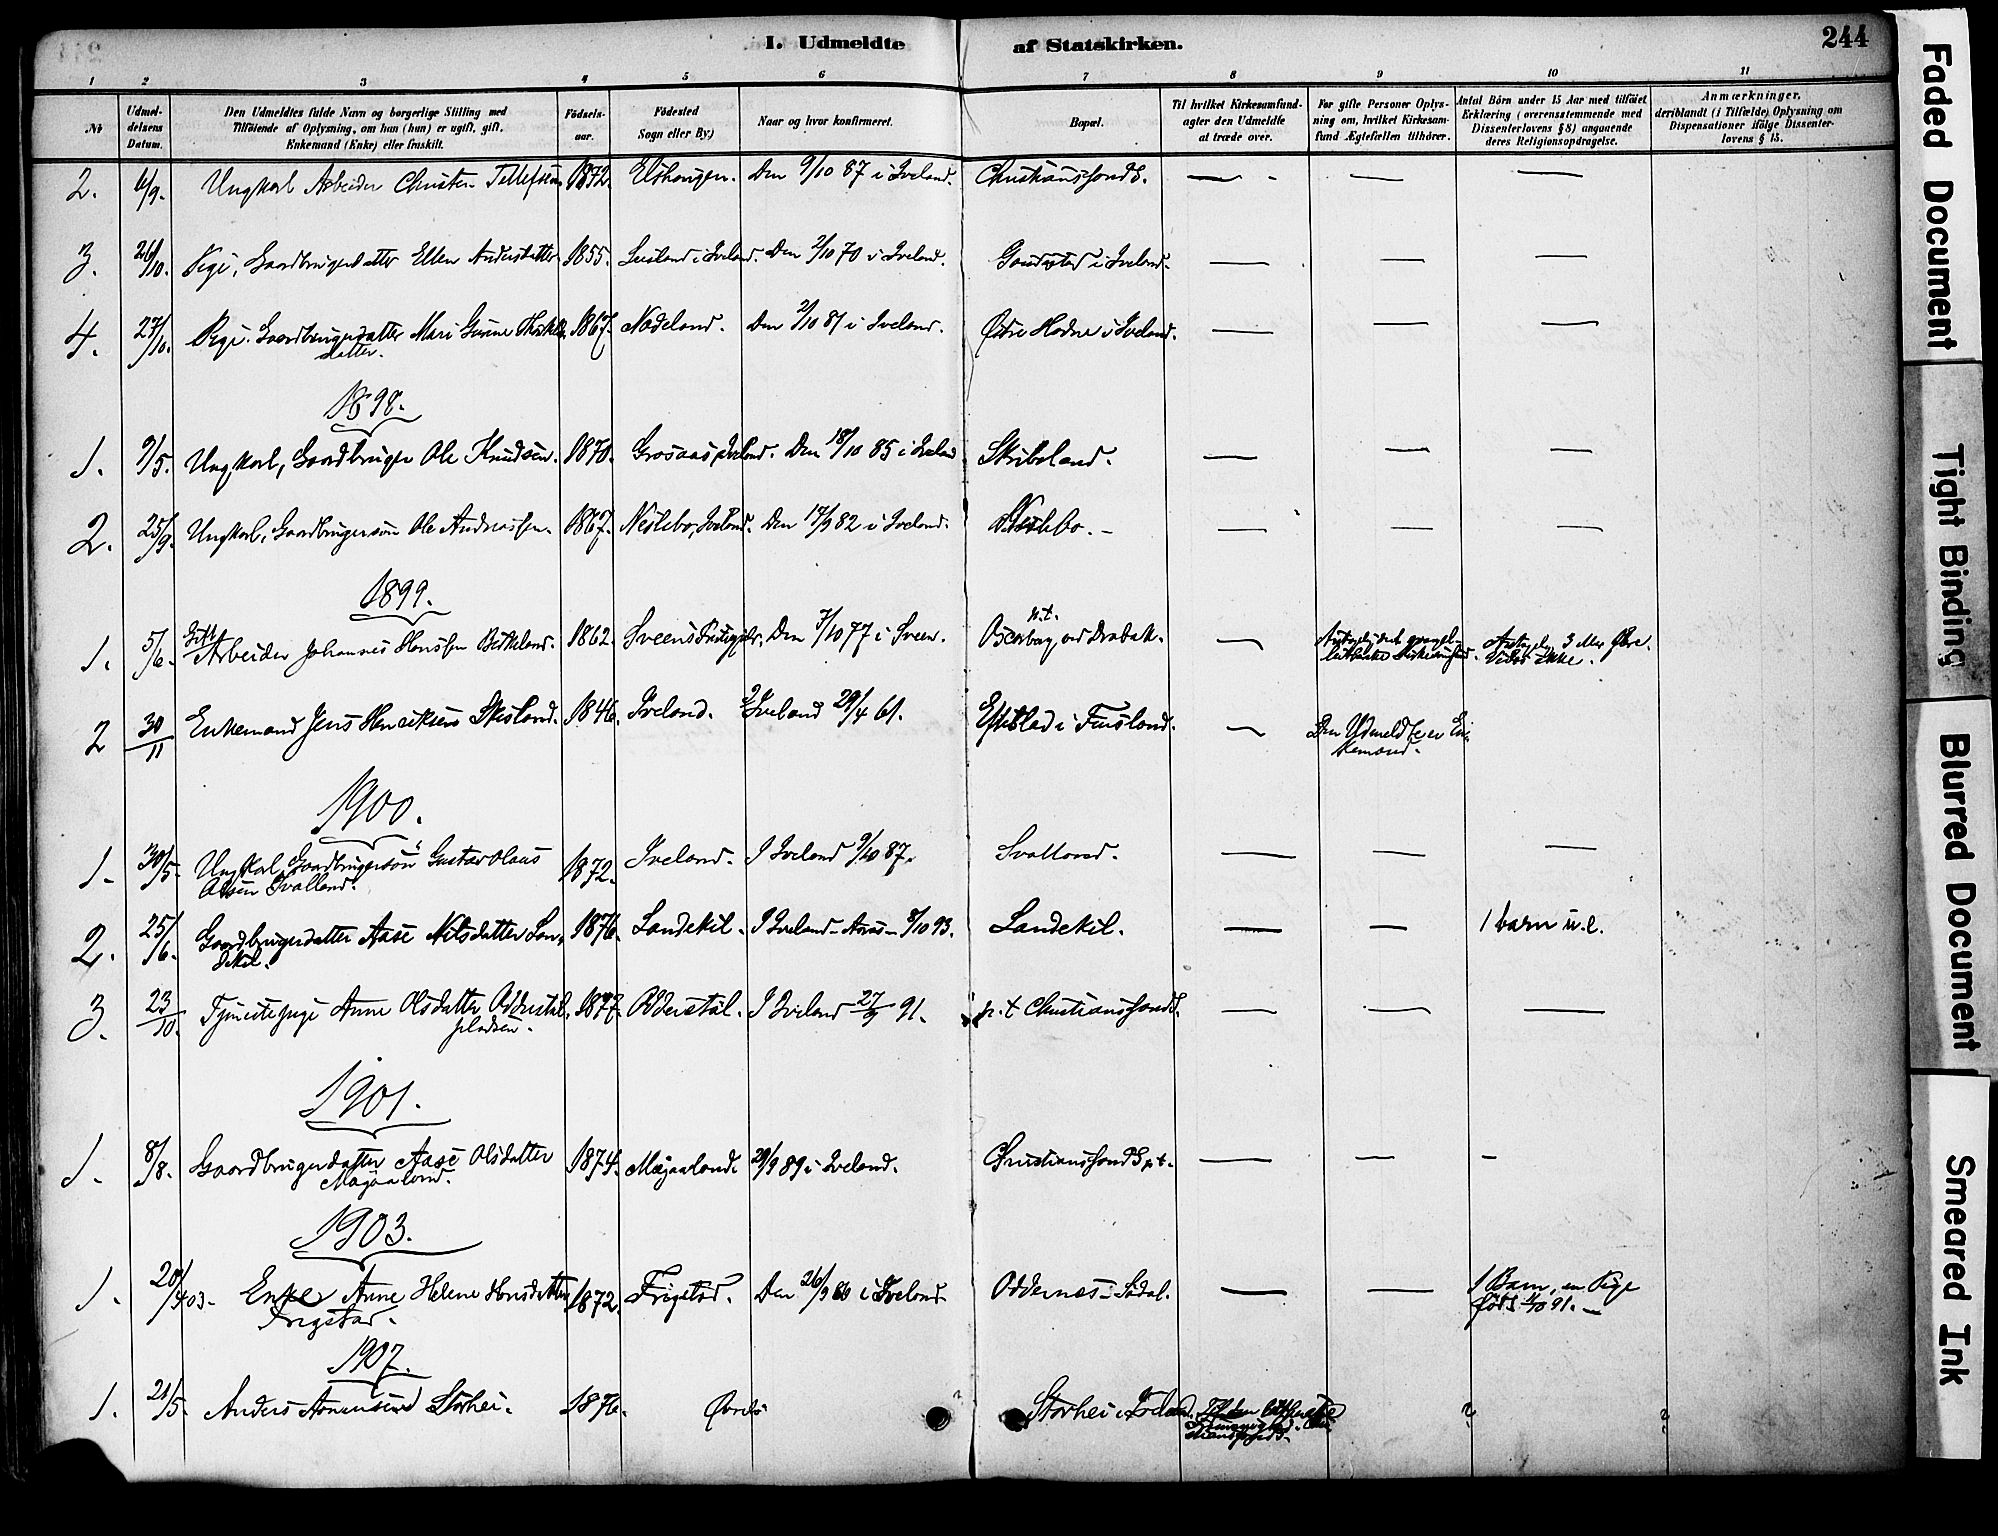 I. Udmeldte af Statskirken. 244
1 2 3 4 5 6 7 8 9 10 11
No Udmeldelsens Datum. Den Udmeldtes fulde Navn og borgerlige Stilling med Tilföiende af Oplysning, om han (hun) er ugift, gift, Enkemand (Enke) eller fraskilt. Födselsaar. Födested Sogn eller By) Naar og hvor konfirmeret. Bopæl. Til hvilket Kirkesamfund agter den Udmeldte at træde over. For gifte Personer Oplysning om, hvilket Kirkesamfund Ægtefællen tilhörer. Antal Börn under 15 Aar med tilföiet Erklæring (overensstemmende med Dissenterlovens § 8) angaaende deres Religionsopdragelse. Anmærkninger, deriblandt (i Tilfælde) Oplysning om Dispensationer ifölge Dissenterlovens § 15.
2. 6/9. Ungkarl Arbeider Christen Tellefsen 1872. Den 9/10 87 i Iveland. Christianssands. — — —
3. 26/10. Pige, Gaardbrugerdatter Ellen Andersdatter 1855. i Iveland. Den 2/10 70 i Iveland. i Iveland. — — —
4. 27/10. Pige. Gaardbrugerdatter Mari Gurine datter. 1867. Nodeland. Den 2/10 81 i Iveland. Øvre i Iveland. — — —
1898.
1. 9/5. Ungkarl, Gaardbruger Ole Knudsen. 1870. Grosaas, Iveland. Den 18/10 85 i Iveland Skribeland. — — —
2. 25/9. Ungkarl, Gaardbrugersøn Ole Andreassen. 1867. Neslebo, Iveland. Den 17/9 82 i Iveland. Neslebo. — — — —
1899.
1. 5/6. Gift Arbeider Johannes Hanssen Birkeland. 1862. Sveens Den 7/10 77 i Sveen. p.t. Oscarborg ved Drøbak. — 3 ikke.
2 30/11 Enkemand Jens Henriksen 1846. Iveland. I Iveland 29/4 61. i Finsland. — Den Udmeldte er Enkemand.
1900.
1. 30/5. Ungkarl, Gaardbrugersøn Gustav Olaus Olsen Ivalland. 1872. Iveland. I Iveland 9/10 87. — — —
2. 25/6. Gaardbrugerdatter Aase Nilsdatter Landekil. 1876. Landekil. I Iveland - Aas - 8/10 93. Landekil. — — 1 barn u.e.
3. 23/10. Tjenestepige Anne Olsdatter Odderstøl, pladsen. 1877. Odderstøl. I Iveland 27/9 91. p.t Christianssands. — — —
1901.
1. 8/8. Gaardbrugerdatter Aase Olsdatter Majaaland. 1874. Mejaaland. 29/9 89 i Iveland. Christianssands p.t. — — —
1903.
1. 20/4 03. Enke Anne Helene Hansdatter Frigstad. 1872. Frigstad. Den 26/9 i Iveland. Oddernæs i Sødal. — — 1 Barn, en Pige født 91. —
1907.
1. 21/5. Anders Storhei. 1876. ? Storhei i Til den lutherske ? ?
Faded Document
Tight Binding
Blurred Document
Smeared Ink